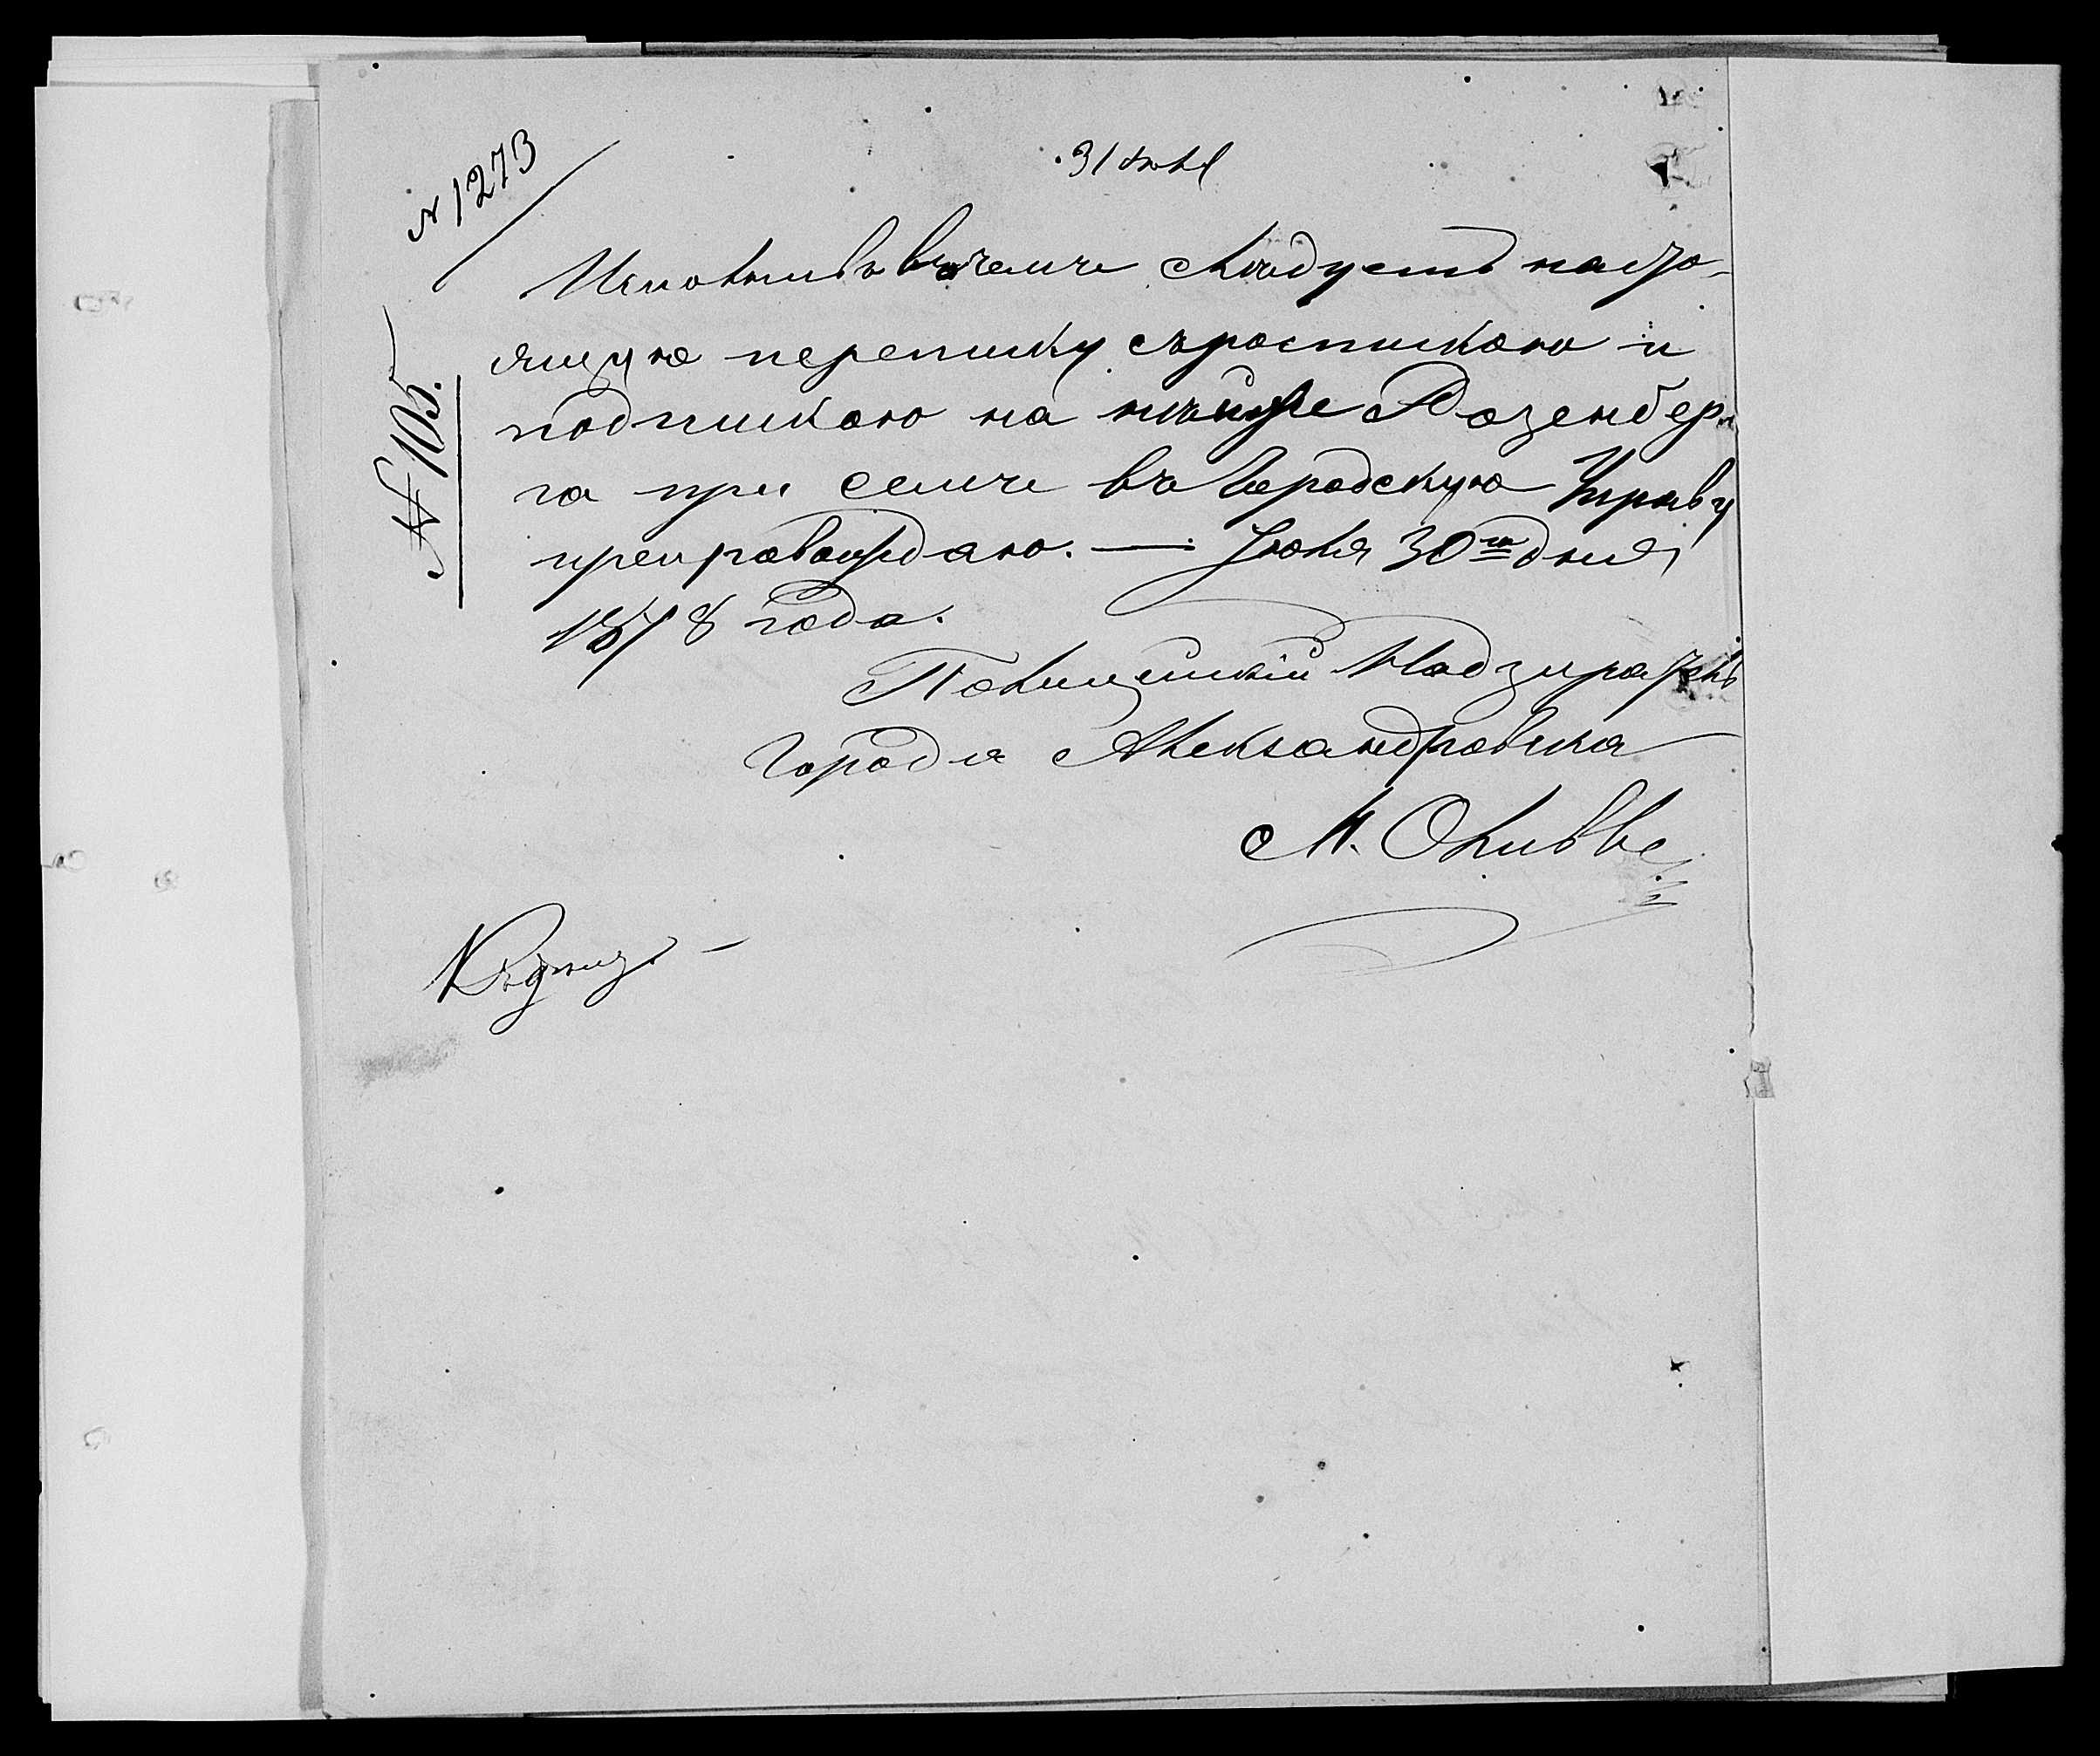 № 1273
31 июл
Исполнивъ въ чемъ слѣдуетъ насто-
ящую переписку съ роспискою и
подпискою на имя Розенбер
га при семъ въ Городскую Управу
препровождаю. — Іюля 30го дня
1878 года.
Полицейскій Надзиратель
Города Александровска
М. Оливве
№ 105.